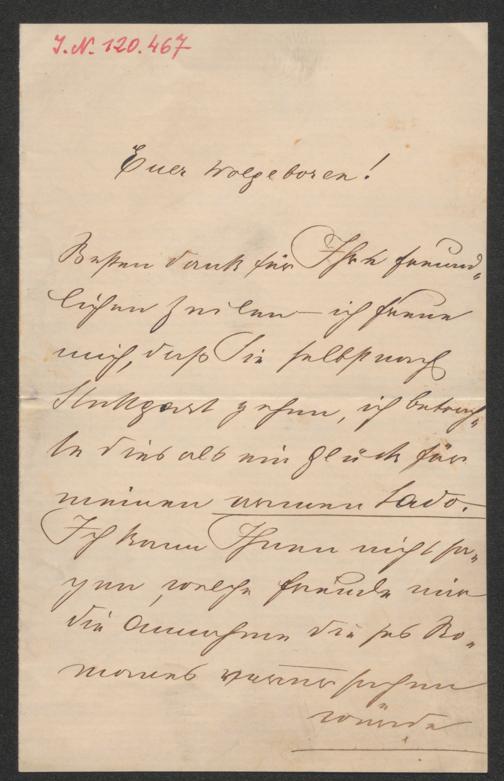 J.N. 120.467
Euer Wolgeboren!
Besten Dank für Ihre freund-
lichen Zeilen – ich freue
mich, daß Sie selbst nach
Stuttgart gehen, ich betrach-
te dies als ein Glück für
meinen armen Lado.
Ich kann Ihnen nicht sa-
gen, welche Freude mir
die Annahme dieses Ro-
manes verursachen
würde